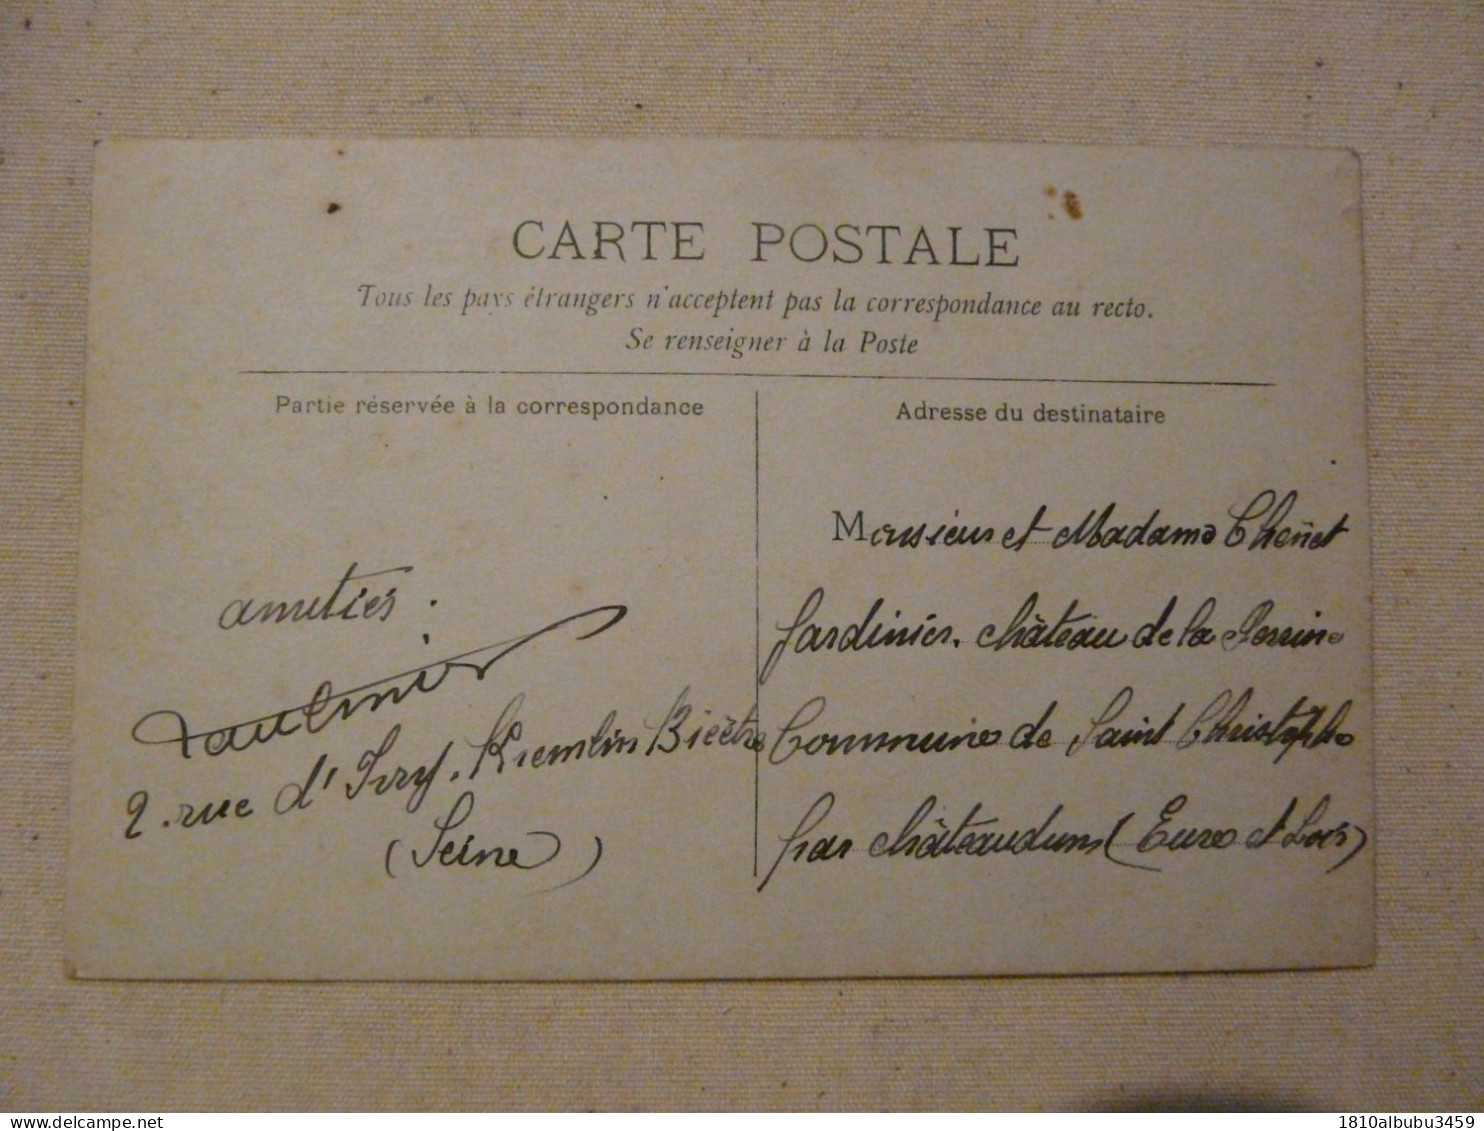 CARTE POSTALE
Tous les pays étrangers n'acceptent pas la correspondance au recto.
Se renseigner à la Poste
Partie réservée à la correspondance
amitiés.
2. rue d'Ivry. Kremlin Bicêtre
(Seine)
Adresse du destinataire
Monsieur et Madame Chenet
Jardinier. château de la Perrine
Commune de Saint Christophe
par châteaudun (Eure et Loir)
1810albubu3459